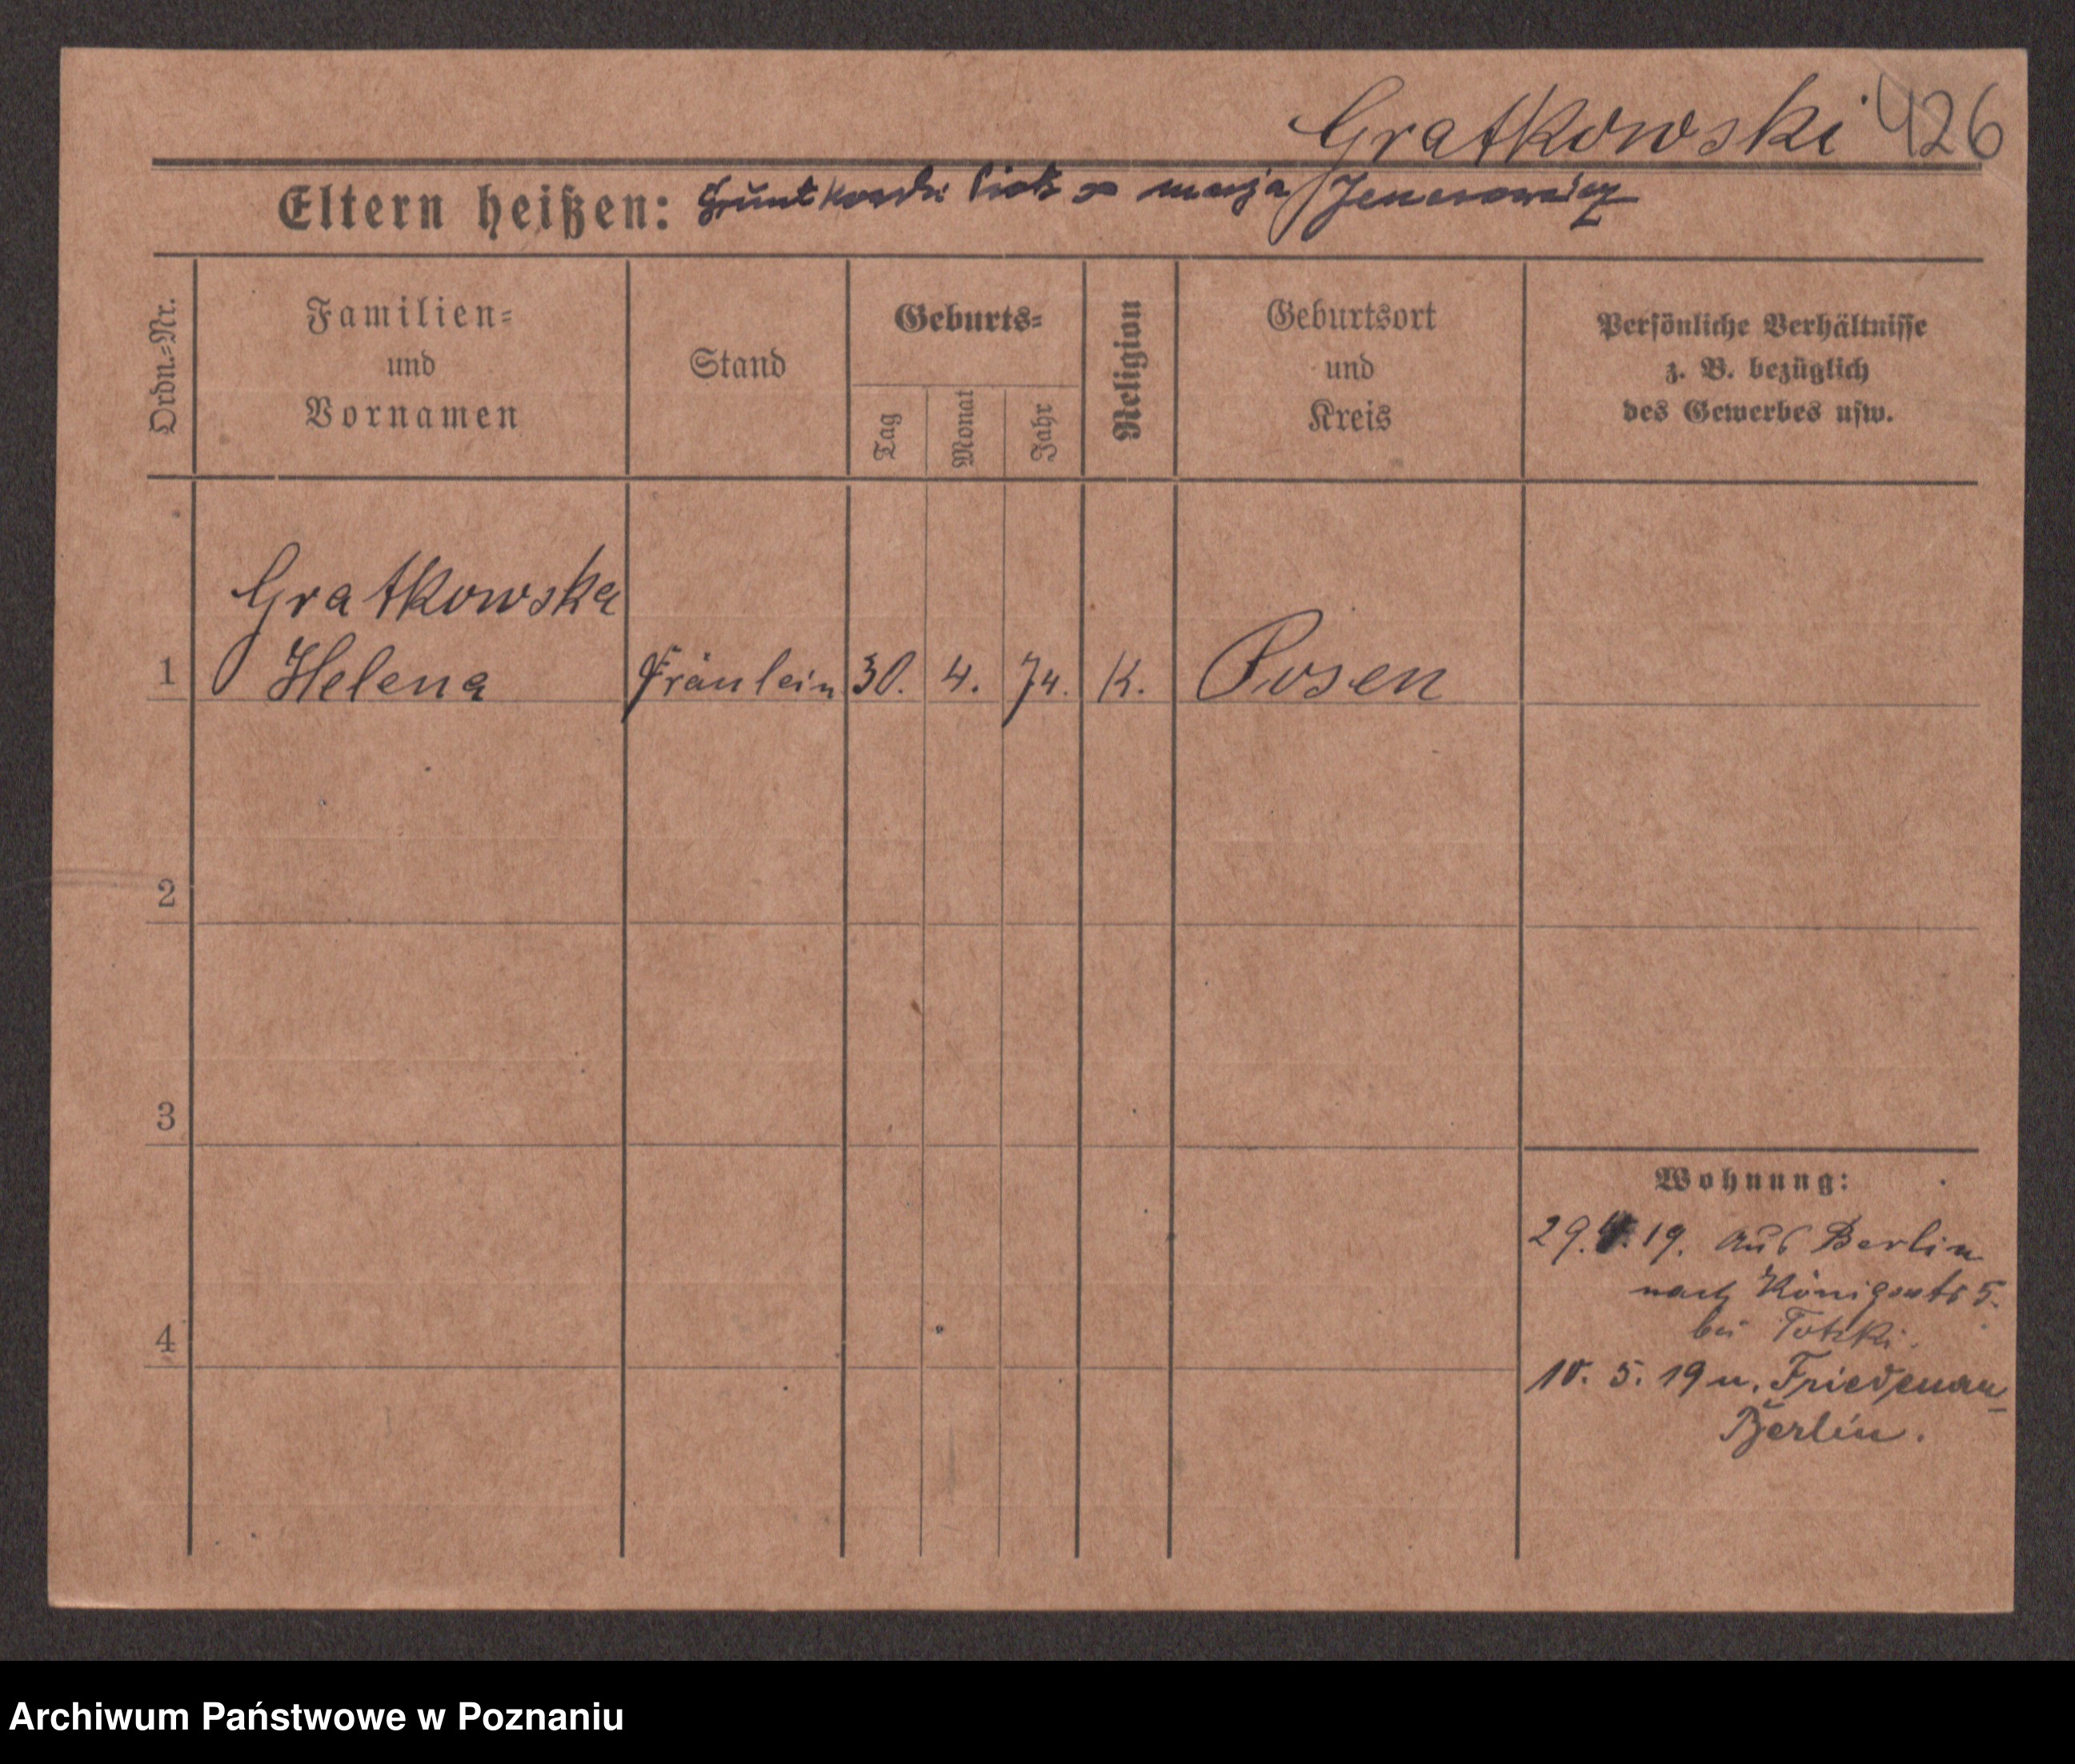 Gratkowski 426
Eltern heißen: Piotr ∞ Marja
Ordn.=Nr.
Familien=
und
Vornamen
Stand
Geburts=
Tag
Monat
Jahr
Religion
Geburtsort
und
Kreis
Persönliche Verhältnisse
z. B. bezüglich
des Gewerbes usw.
Gratkowska
1 Helena Fräulein 30. 4. 74. K. Posen
2
3
4
Wohnung:
29. 4. 19. aus Berlin
nach Königstr 5.
bei Totzki.
10. 5. 19 n. Friedenau
Berlin.
Archiwum Państwowe w Poznaniu